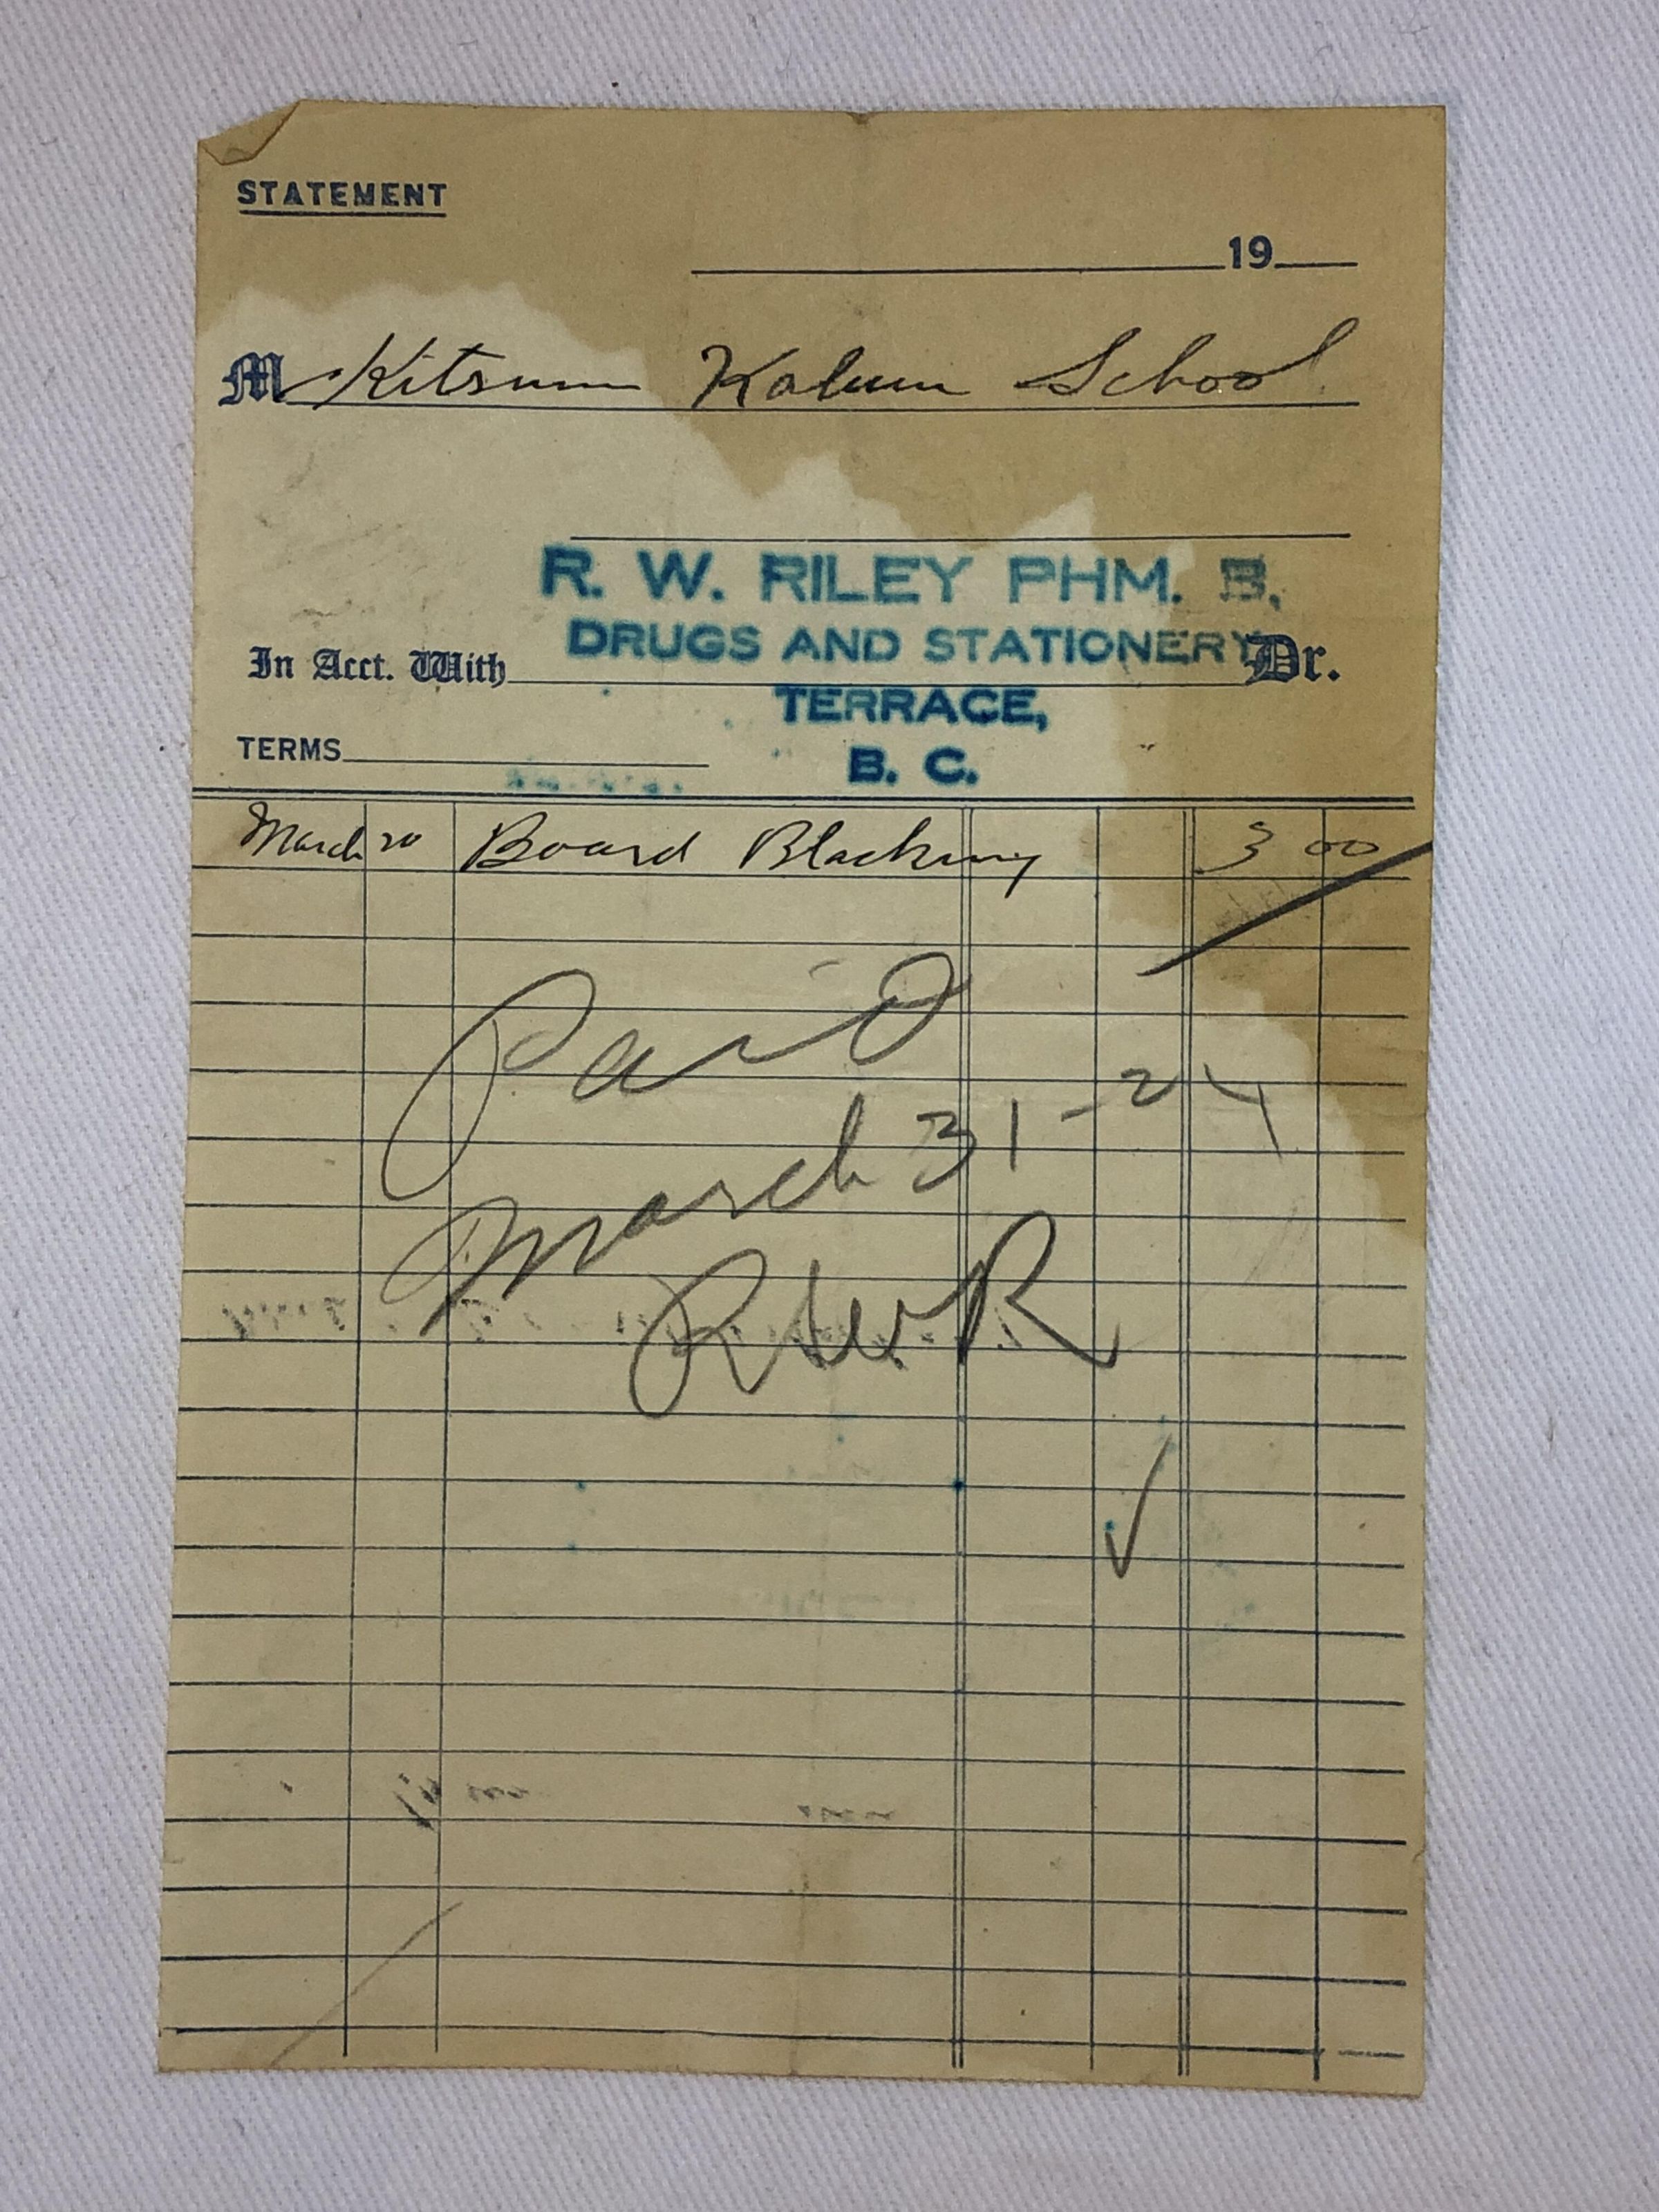 STATEMENT
19
M Kitsum Kalum School
R. W. RILEY PHM. B,
DRUGS AND STATIONERY
In Acct. With Dr.
TERRACE,
TERMS
B. C.
March 20 Board Blacking 3 00
Paid
March 31-24
RWR